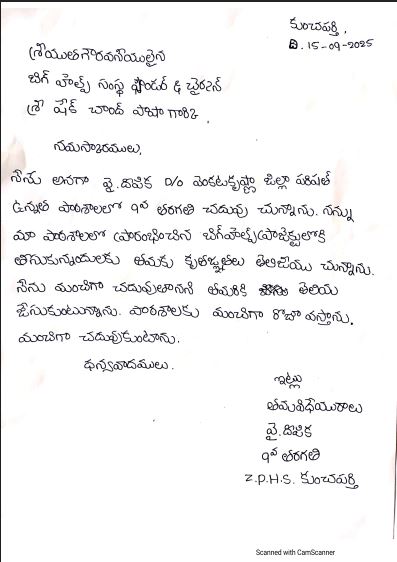 కుంచపర్తి,
ది. 15-09-2025
శ్రీయుత గౌరవనీయులైన
బిగ్ హెల్ప్ సంస్థ ఫౌండర్ & చైర్మన్
శ్రీ షేక్ చాంద్ పాషా గారికి,
నమస్కారములు,
నేను అనగా వై.దీపిక D/o వెంకటకృష్ణా జిల్లా పరిషత్
ఉన్నత పాఠశాలలో 9వ తరగతి చదువు చున్నాను. నన్ను
మా పాఠశాలలో ప్రారంభించిన బిగ్‌హెల్ప్ ప్రాజెక్టులోకి
తీసుకున్నందులకు తమకు కృతజ్ఞతలు తెలియజేయు చున్నాను.
నేను మంచిగా చదువుతానని తమరికి తెలియ
జేసుకుంటున్నాను. పాఠశాలకు మంచిగా రోజూ వస్తాను.
మంచిగా చదువుకుంటాను.
ధన్యవాదములు.
ఇట్లు
తమ విధేయురాలు
వై.దీపిక
9వ తరగతి
Z.P.H.S. కుంచపర్తి
Scanned with CamScanner